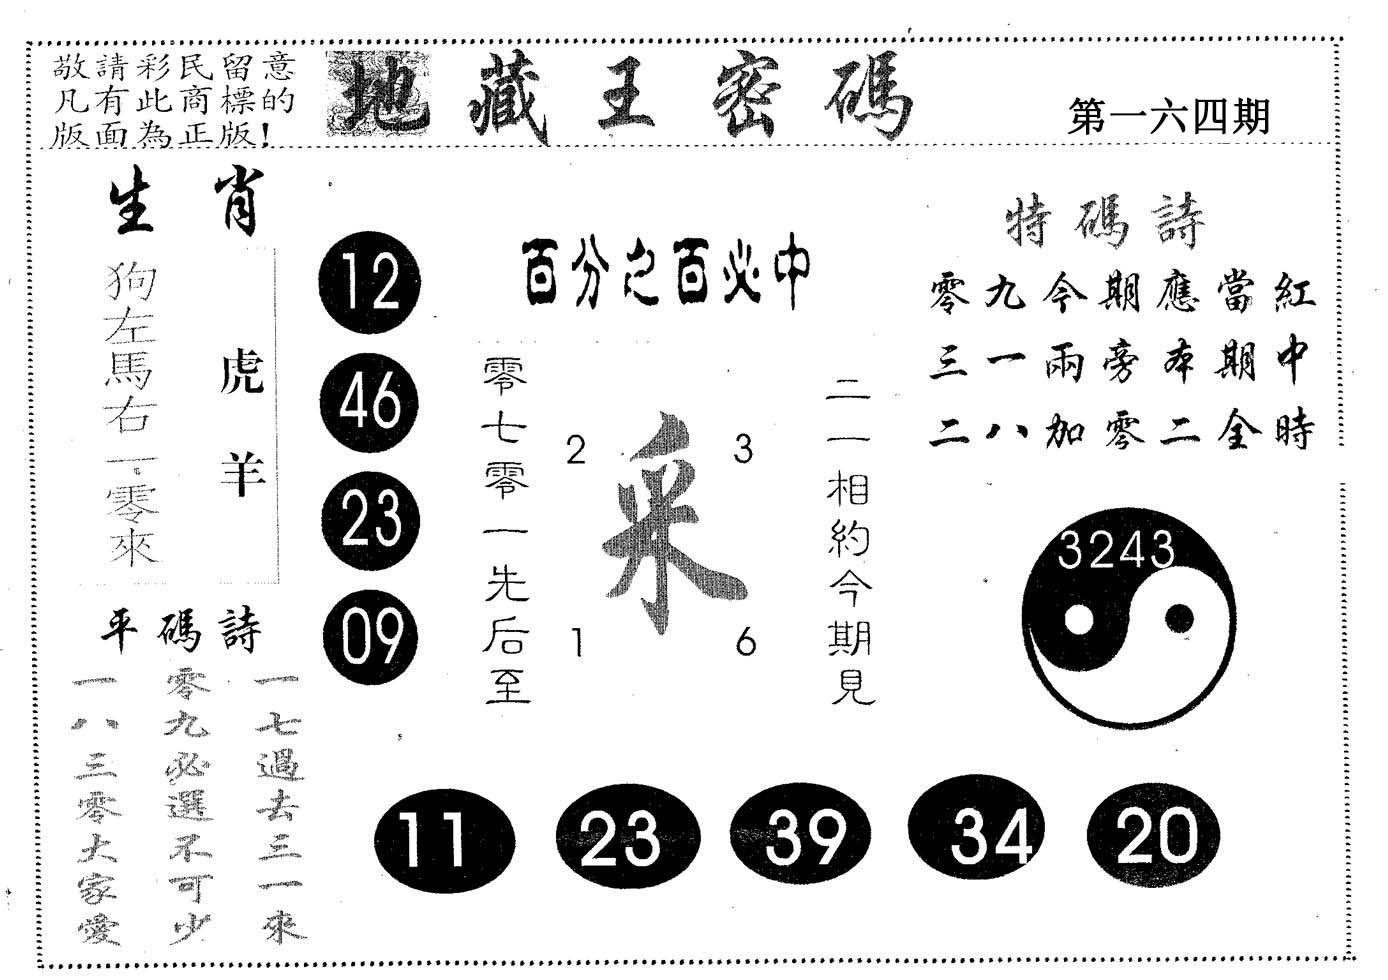 敬請彩民留意
凡有此商標的
版面為正版!
地藏王密碼
第一六四期
生肖
狗左馬右一零來
虎羊
12
46
23
09
百分之百必中
零七零一先后至
2
3
采
1
6
二一相約今期見
特碼詩
零九今期應當紅
三一兩旁本期中
二八加零二全時
3243
平碼詩
一七過去三一來
零九必選不可少
一八三零大家愛
11
23
39
34
20